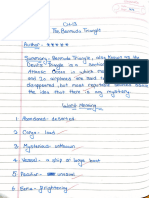 CH-13
The Bermuda Triangle
Author - *****
Summary - Bermuda Triangle, also known as the
Devil's Triangle is a section
Atlantic Ocean in which
and 20 airplanes are said to
disappeared, but most reputable
the idea that there is any mystery.
Word Meaning
1. Abandoned - deserted
2. Cargo - load
3. Mysterious - unknown
4. Vessel - a ship or large boat
5. Peculiar - unusual
6. Eerie - frightening